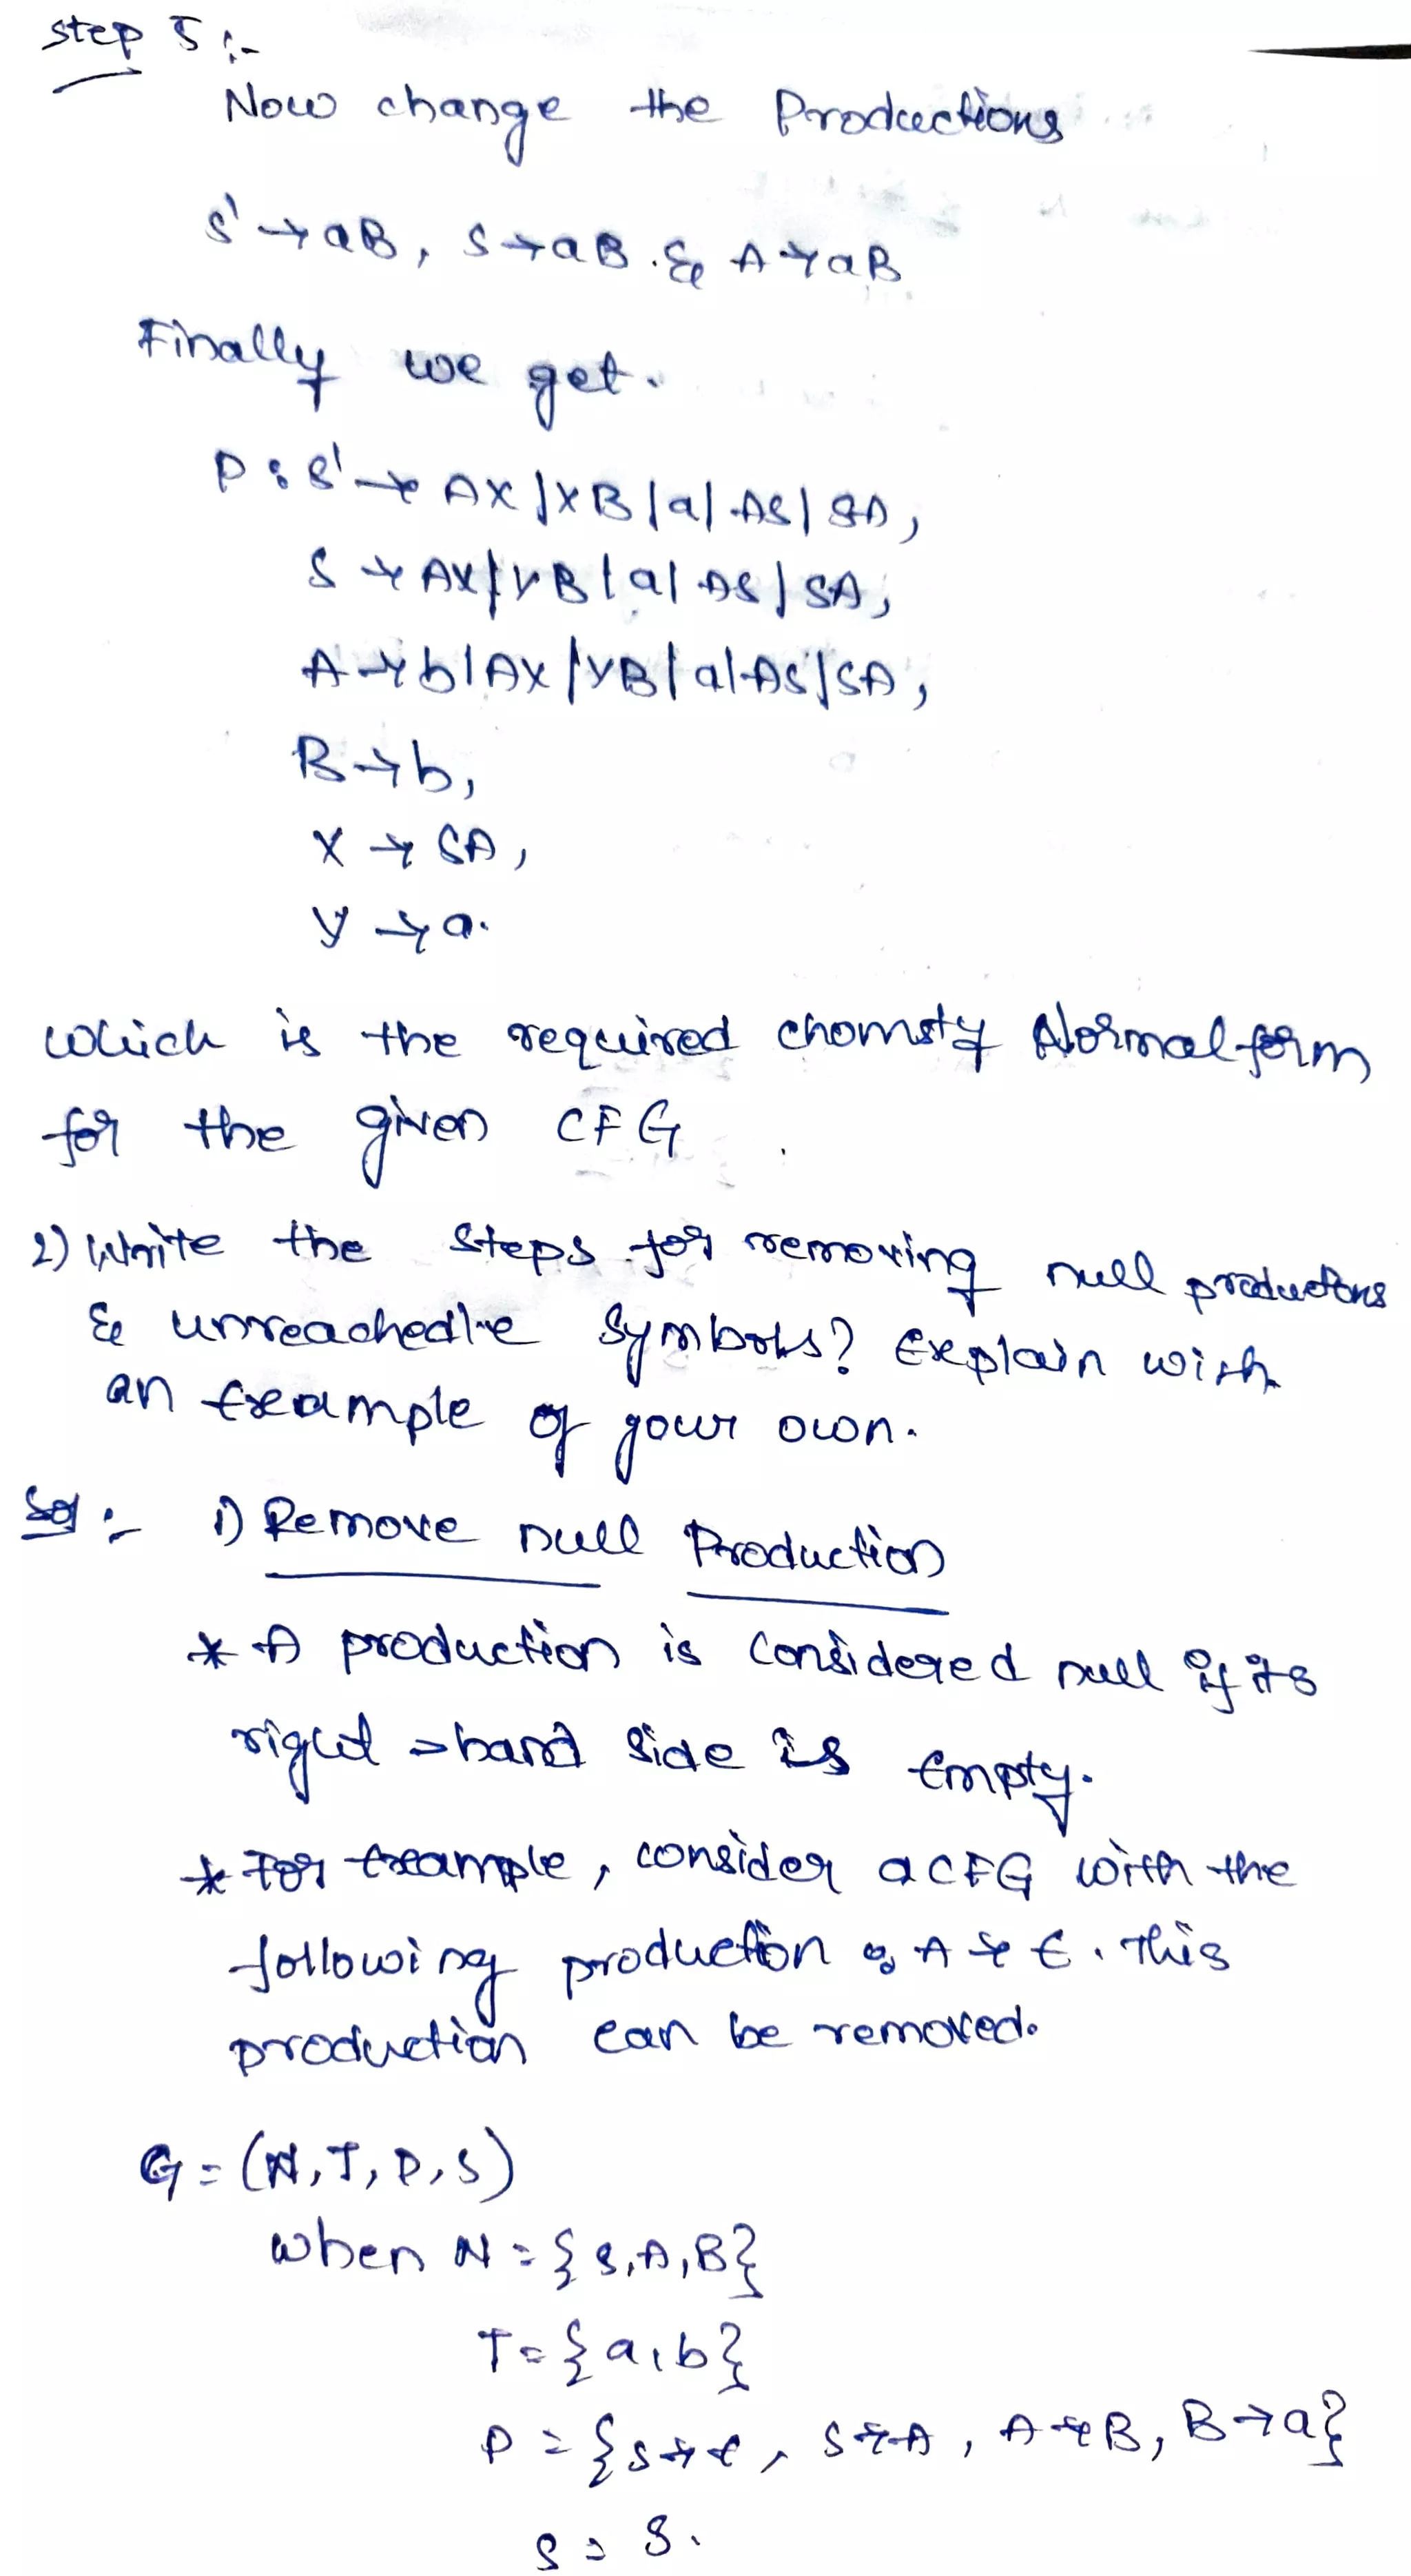 step 5 :-
Now change the Productions
S' → aB, S → aB. & A → aB
Finally we get.
P : S' → AX | XB | a | AS | SA,
S → AX | YB | a | AS | SA,
A → b | AX | YB | a | AS | SA,
B → b,
X → SA,
Y → a.
which is the required chomsty Normal form
for the given CFG
2) Write the steps for removing null productons
& unreachedle symbols? Explain with
an Example of your own.
Sol :- i) Remove null Production
* A production is considered null if its
right-hand side is Empty.
* For Example, consider a CFG with the
following production : A → ε. This
production can be removed.
G = (N, T, P, S)
when N = {S, A, B}
T = {a, b}
P = {S → ε, S → A, A → B, B → a}
S = S.